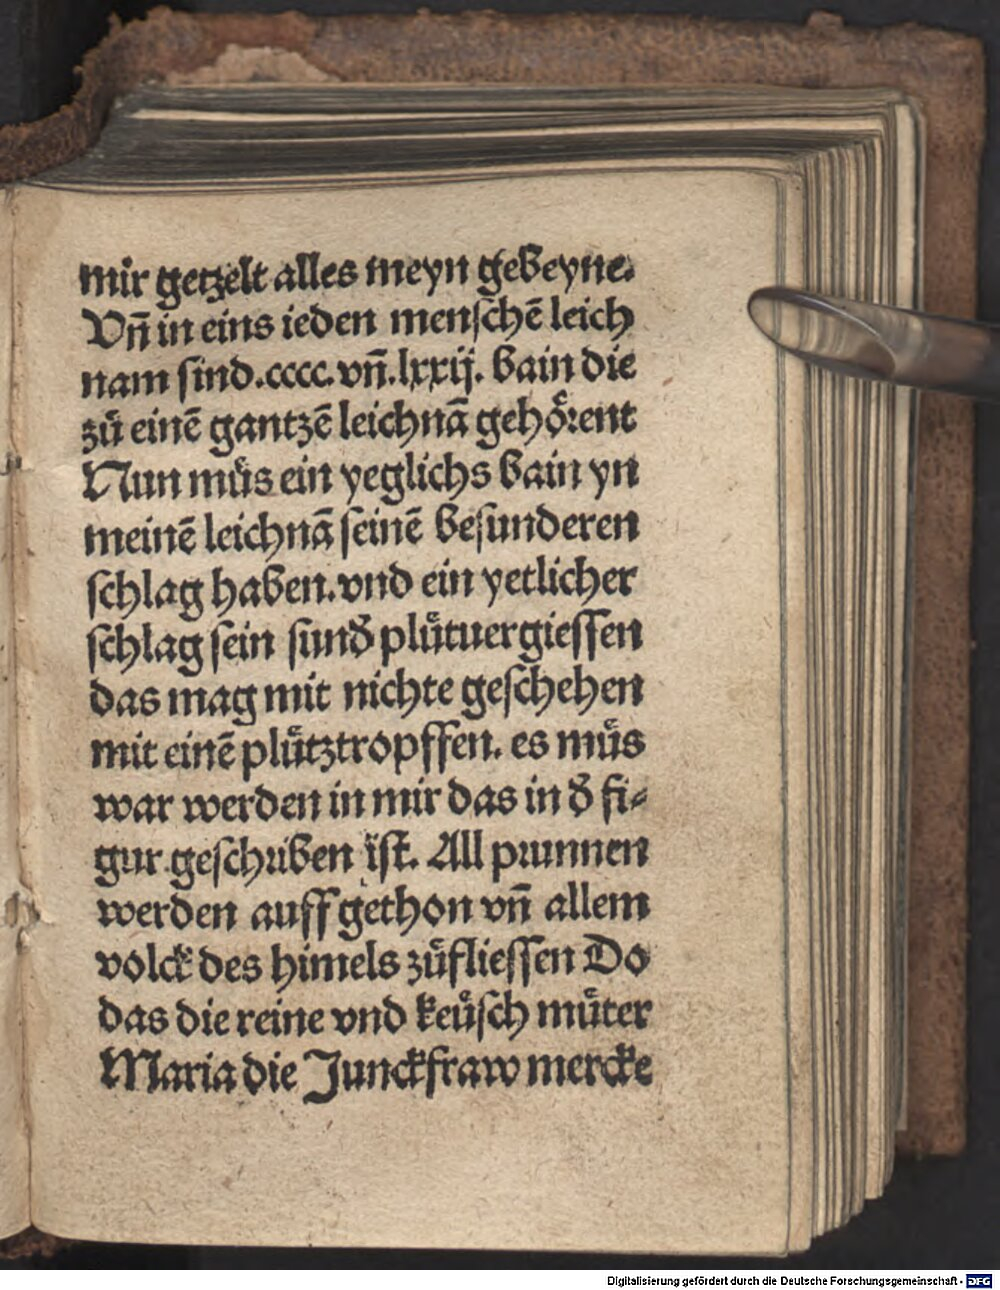 mir getzelt alles meyn gebeyne.
Vñ in eins ieden menschē leich
nam sind.cccc.vñ.lxxij. bain die
zů einē gantzē leichnā gehörent
Nun můs ein yeglichs bain yn
meinē leichnā seinē besunderen
schlag haben.vnd ein yetlicher
schlag sein sund plůtuergiessen
das mag mit nichte geschehen
mit einē plůtztropffen. es můs
war werden in mir das in d̕ fi⸗
gur geschriben ist. All prunnen
werden auff gethon vñ allem
volck des himels zůfliessen Do
das die reine vnd keůsch můter
Maria die Junckfraw mercke
Digitalisierung gefördert durch die Deutsche Forschungsgemeinschaft - DFG